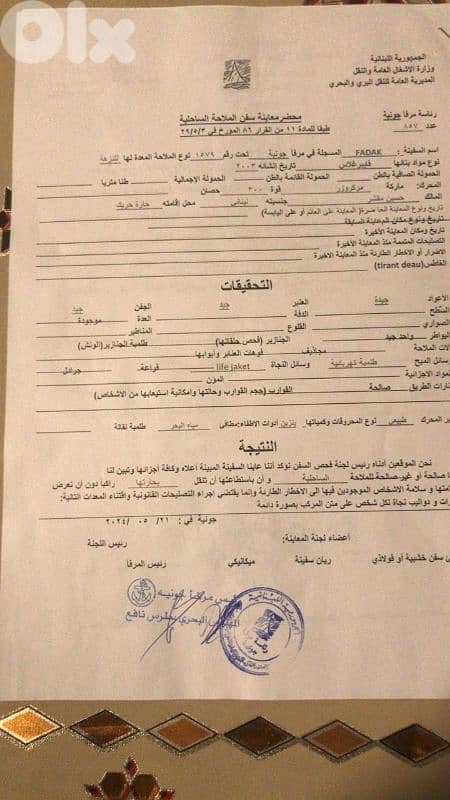 OLX
الجمهورية اللبنانية
وزارة الاشغال العامة والنقل
المديرية العامة للنقل البري والبحري
رئاسة مرفأ جونية
عدد ٨٥٧
محضر معاينة سفن الملاحة الساحلية
طبقا للمادة ١١ من القرار ٨٦ المؤرخ في ٢٩/٥/٣
اسم السفينة : FADAK المسجلة في مرفأ جونية تحت رقم ١٥٧٩ نوع الملاحة المعدة لها للنزهة
نوع مواد بنائها فايبرغلاس تاريخ انشائه ٢٠٠٣
الحمولة الصافية بالطن الحمولة القائمة بالطن الحمولة الإجمالية طنا متريا
المحرك: ماركة مركروزر قوة ٣٠٠ حصان
المالك حسين جنسيته لبناني محل إقامته حارة حريك
تاريخ ونوع السفينة (المعاينة على المائم أو على اليابسة)
تاريخ ونوع مكان المعاينة السابقة
تاريخ ومكان المعاينة الأخيرة
التصليحات المتممة منذ المعاينة الأخيرة
الاضرار أو الاخطار الطارئة منذ المعاينة الاخيرة
الغاطس (tirant deau)
التحقيقات
الاعواد جيدة العنبر جيد الجفن جيد
السطح الدفة العدة موجودة
الصواري القلوع المناظير
واحد جيد الجنازير (فحص حلقاتها) طلمبة الجنازير (الونش)
لات الملاحة مجاذيف فوهات العنابر وأبوابها
سائل الميح طلمبة كهربائية وسائل النجاة life jaket قراعة جرادل
المواد الاجزائية المؤن
ارات الطريق صالحة القوارب (حجم القوارب وحالتها وامكانية استيعابها من الاشخاص)
ير المحرك طبيعي نوع المحروقات وكمياتها بنزين أدوات الاطفاء: مطافئ مياه البحر طلمبة نقالة
النتيجة
نحن الموقعين أدناه رئيس لجنة فحص السفن نؤكد أننا عاينا السفينة المبينة أعلاه وكافة أجزائها وتبين لنا
ا صالحة أو غير صالحة للملاحة الساحلية و أن باستطاعتها أن تنقل بحارتها راكبا دون أن تعرض
متها و سلامة الاشخاص الموجودين فيها الى الاخطار الطارئة وإنما يقتضي إجراء التصليحات القانونية واقتناء المعدات التالية:
رات و دواليب نجاة لكل شخص على متن المركب بصورة دائمة
جونية في : ٢١ / ٠٥ / ٢٠٢٤
أعضاء لجنة المعاينة: رئيس اللجنة
ي سفن خشبية أو فولاذي ربان سفينة ميكانيكي رئيس المرفا
رئيس مرفأ جونيه
البحري بطرس نافع